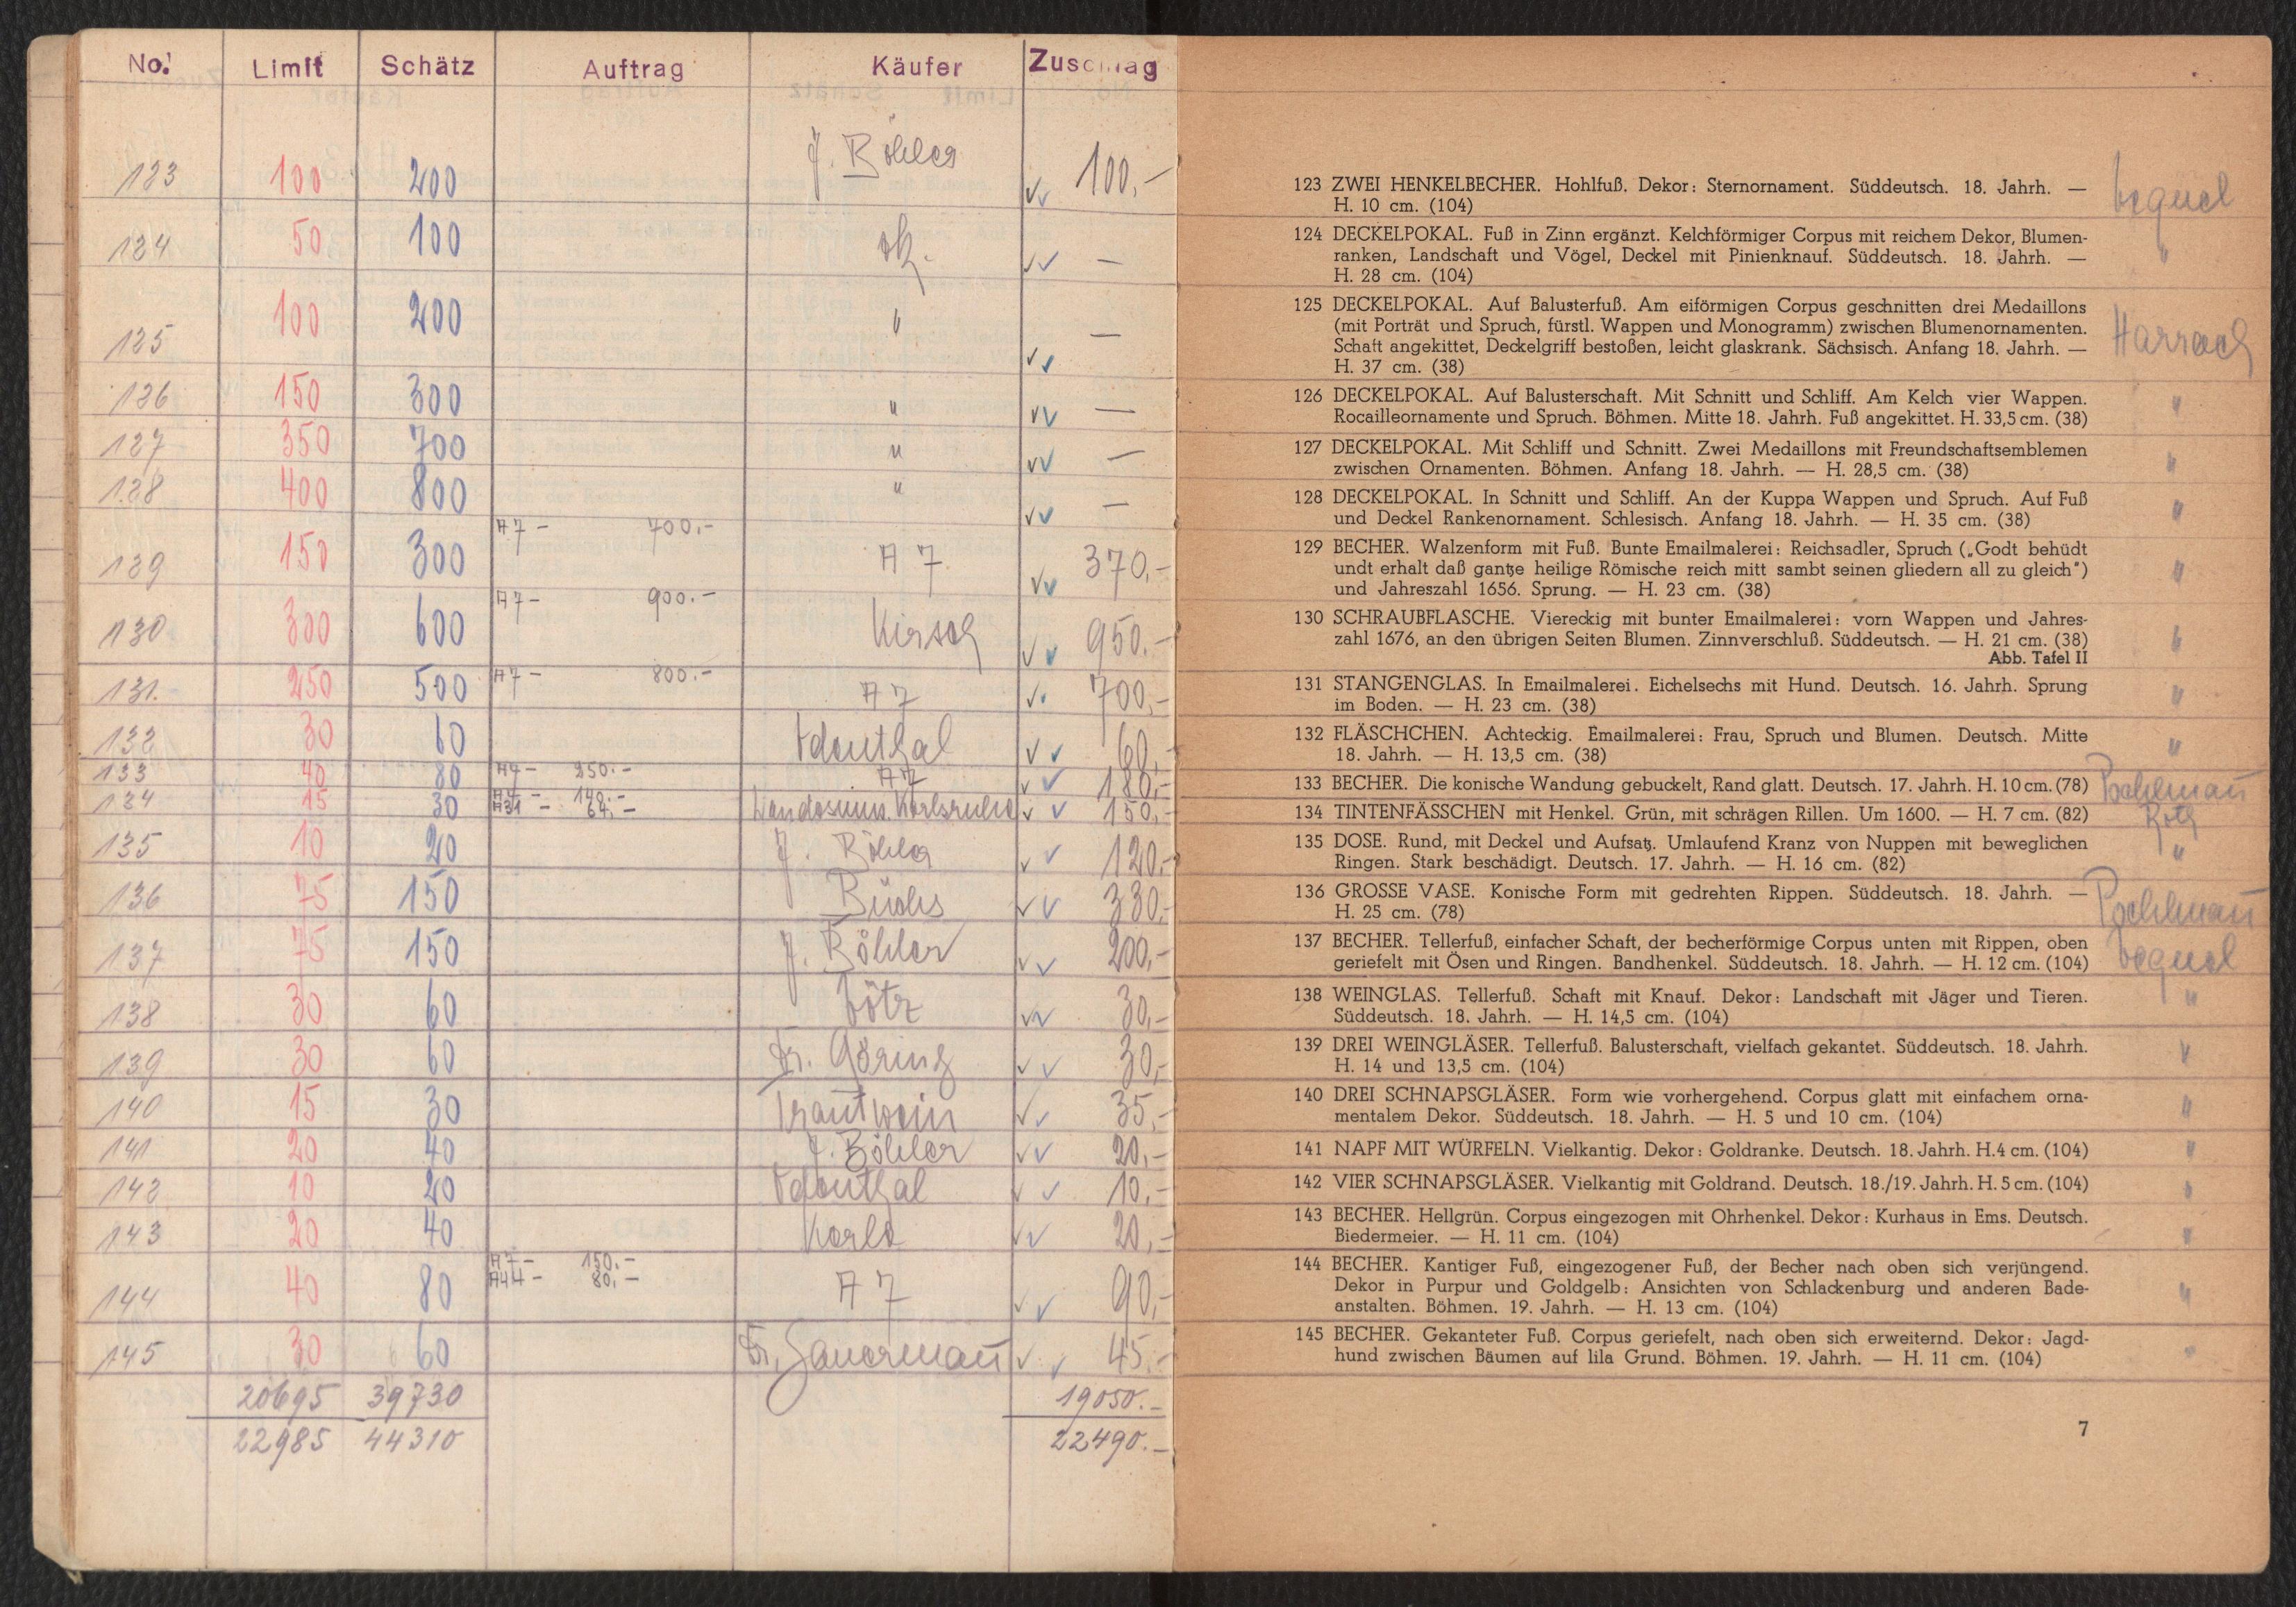 No. Limit Schätz Auftrag Käufer Zuschlag
123 100 200 J. Böhler √√ 100,-
124 50 100 √√ —
125 100 200 " √√ —
126 150 300 " √√ —
127 350 700 " √√ —
128 400 800 " √√ —
129 150 300 A7 - 700.- A7 √√ 370,-
130 300 600 A7 - 900.- Kirsch √√ 950.-
131. 250 500 A7 - 800.- A7 √√ 700,-
132 30 60 √√ 60,-
133 40 80 A7 - 250.- A7 √√ 180,-
134 15 30 A7 - 140.- Landesmus. Karlsruhe √√ 150,-
A31 - 64.-
135 10 20 J. Böhler √√ 120,-
136 75 150 √√ 330,-
137 75 150 J. Böhler √√ 200,-
138 30 60 √√ 30,-
139 30 60 Dr. Göring √√ 30,-
140 15 30 Trautwein √√ 35,-
141 20 40 J. Böhler √√ 20,-
142 10 20 √√ 10,-
143 20 40 √√ 20,-
144 40 80 A7 - 150.- A7 √√ 90,-
A44 - 80,-
145 30 60 √√ 45.-
20695 39730 19050.-
22985 44310 22490.-
123 ZWEI HENKELBECHER. Hohlfuß. Dekor: Sternornament. Süddeutsch. 18. Jahrh. —
H. 10 cm. (104)
124 DECKELPOKAL. Fuß in Zinn ergänzt. Kelchförmiger Corpus mit reichem Dekor, Blumen-
ranken, Landschaft und Vögel, Deckel mit Pinienknauf. Süddeutsch. 18. Jahrh. — "
H. 28 cm. (104)
125 DECKELPOKAL. Auf Balusterfuß. Am eiförmigen Corpus geschnitten drei Medaillons
(mit Porträt und Spruch, fürstl. Wappen und Monogramm) zwischen Blumenornamenten.
Schaft angekittet, Deckelgriff bestoßen, leicht glaskrank. Sächsisch. Anfang 18. Jahrh. — Harrach
H. 37 cm. (38)
126 DECKELPOKAL. Auf Balusterschaft. Mit Schnitt und Schliff. Am Kelch vier Wappen. "
Rocailleornamente und Spruch. Böhmen. Mitte 18. Jahrh. Fuß angekittet. H. 33,5 cm. (38)
127 DECKELPOKAL. Mit Schliff und Schnitt. Zwei Medaillons mit Freundschaftsemblemen "
zwischen Ornamenten. Böhmen. Anfang 18. Jahrh. — H. 28,5 cm. (38)
128 DECKELPOKAL. In Schnitt und Schliff. An der Kuppa Wappen und Spruch. Auf Fuß "
und Deckel Rankenornament. Schlesisch. Anfang 18. Jahrh. — H. 35 cm. (38)
129 BECHER. Walzenform mit Fuß. Bunte Emailmalerei: Reichsadler, Spruch („Godt behüdt
undt erhalt daß gantze heilige Römische reich mitt sambt seinen gliedern all zu gleich") "
und Jahreszahl 1656. Sprung. — H. 23 cm. (38)
130 SCHRAUBFLASCHE. Viereckig mit bunter Emailmalerei: vorn Wappen und Jahres-
zahl 1676, an den übrigen Seiten Blumen. Zinnverschluß. Süddeutsch. — H. 21 cm. (38) "
Abb. Tafel II
131 STANGENGLAS. In Emailmalerei. Eichelsechs mit Hund. Deutsch. 16. Jahrh. Sprung "
im Boden. — H. 23 cm. (38)
132 FLÄSCHCHEN. Achteckig. Emailmalerei: Frau, Spruch und Blumen. Deutsch. Mitte "
18. Jahrh. — H. 13,5 cm. (38)
133 BECHER. Die konische Wandung gebuckelt, Rand glatt. Deutsch. 17. Jahrh. H. 10 cm. (78)
134 TINTENFÄSSCHEN mit Henkel. Grün, mit schrägen Rillen. Um 1600. — H. 7 cm. (82) Roth
135 DOSE. Rund, mit Deckel und Aufsatz. Umlaufend Kranz von Nuppen mit beweglichen "
Ringen. Stark beschädigt. Deutsch. 17. Jahrh. — H. 16 cm. (82)
136 GROSSE VASE. Konische Form mit gedrehten Rippen. Süddeutsch. 18. Jahrh. —
H. 25 cm. (78)
137 BECHER. Tellerfuß, einfacher Schaft, der becherförmige Corpus unten mit Rippen, oben
geriefelt mit Ösen und Ringen. Bandhenkel. Süddeutsch. 18. Jahrh. — H. 12 cm. (104)
138 WEINGLAS. Tellerfuß. Schaft mit Knauf. Dekor: Landschaft mit Jäger und Tieren. "
Süddeutsch. 18. Jahrh. — H. 14,5 cm. (104)
139 DREI WEINGLÄSER. Tellerfuß. Balusterschaft, vielfach gekantet. Süddeutsch. 18. Jahrh. "
H. 14 und 13,5 cm. (104)
140 DREI SCHNAPSGLÄSER. Form wie vorhergehend. Corpus glatt mit einfachem orna- "
mentalem Dekor. Süddeutsch. 18. Jahrh. — H. 5 und 10 cm. (104)
141 NAPF MIT WÜRFELN. Vielkantig. Dekor: Goldranke. Deutsch. 18. Jahrh. H. 4 cm. (104) "
142 VIER SCHNAPSGLÄSER. Vielkantig mit Goldrand. Deutsch. 18./19. Jahrh. H. 5 cm. (104) "
143 BECHER. Hellgrün. Corpus eingezogen mit Ohrhenkel. Dekor: Kurhaus in Ems. Deutsch. "
Biedermeier. — H. 11 cm. (104)
144 BECHER. Kantiger Fuß, eingezogener Fuß, der Becher nach oben sich verjüngend.
Dekor in Purpur und Goldgelb: Ansichten von Schlackenburg und anderen Bade- "
anstalten. Böhmen. 19. Jahrh. — H. 13 cm. (104)
145 BECHER. Gekanteter Fuß. Corpus geriefelt, nach oben sich erweiternd. Dekor: Jagd-
hund zwischen Bäumen auf lila Grund. Böhmen. 19. Jahrh. — H. 11 cm. (104) "
7